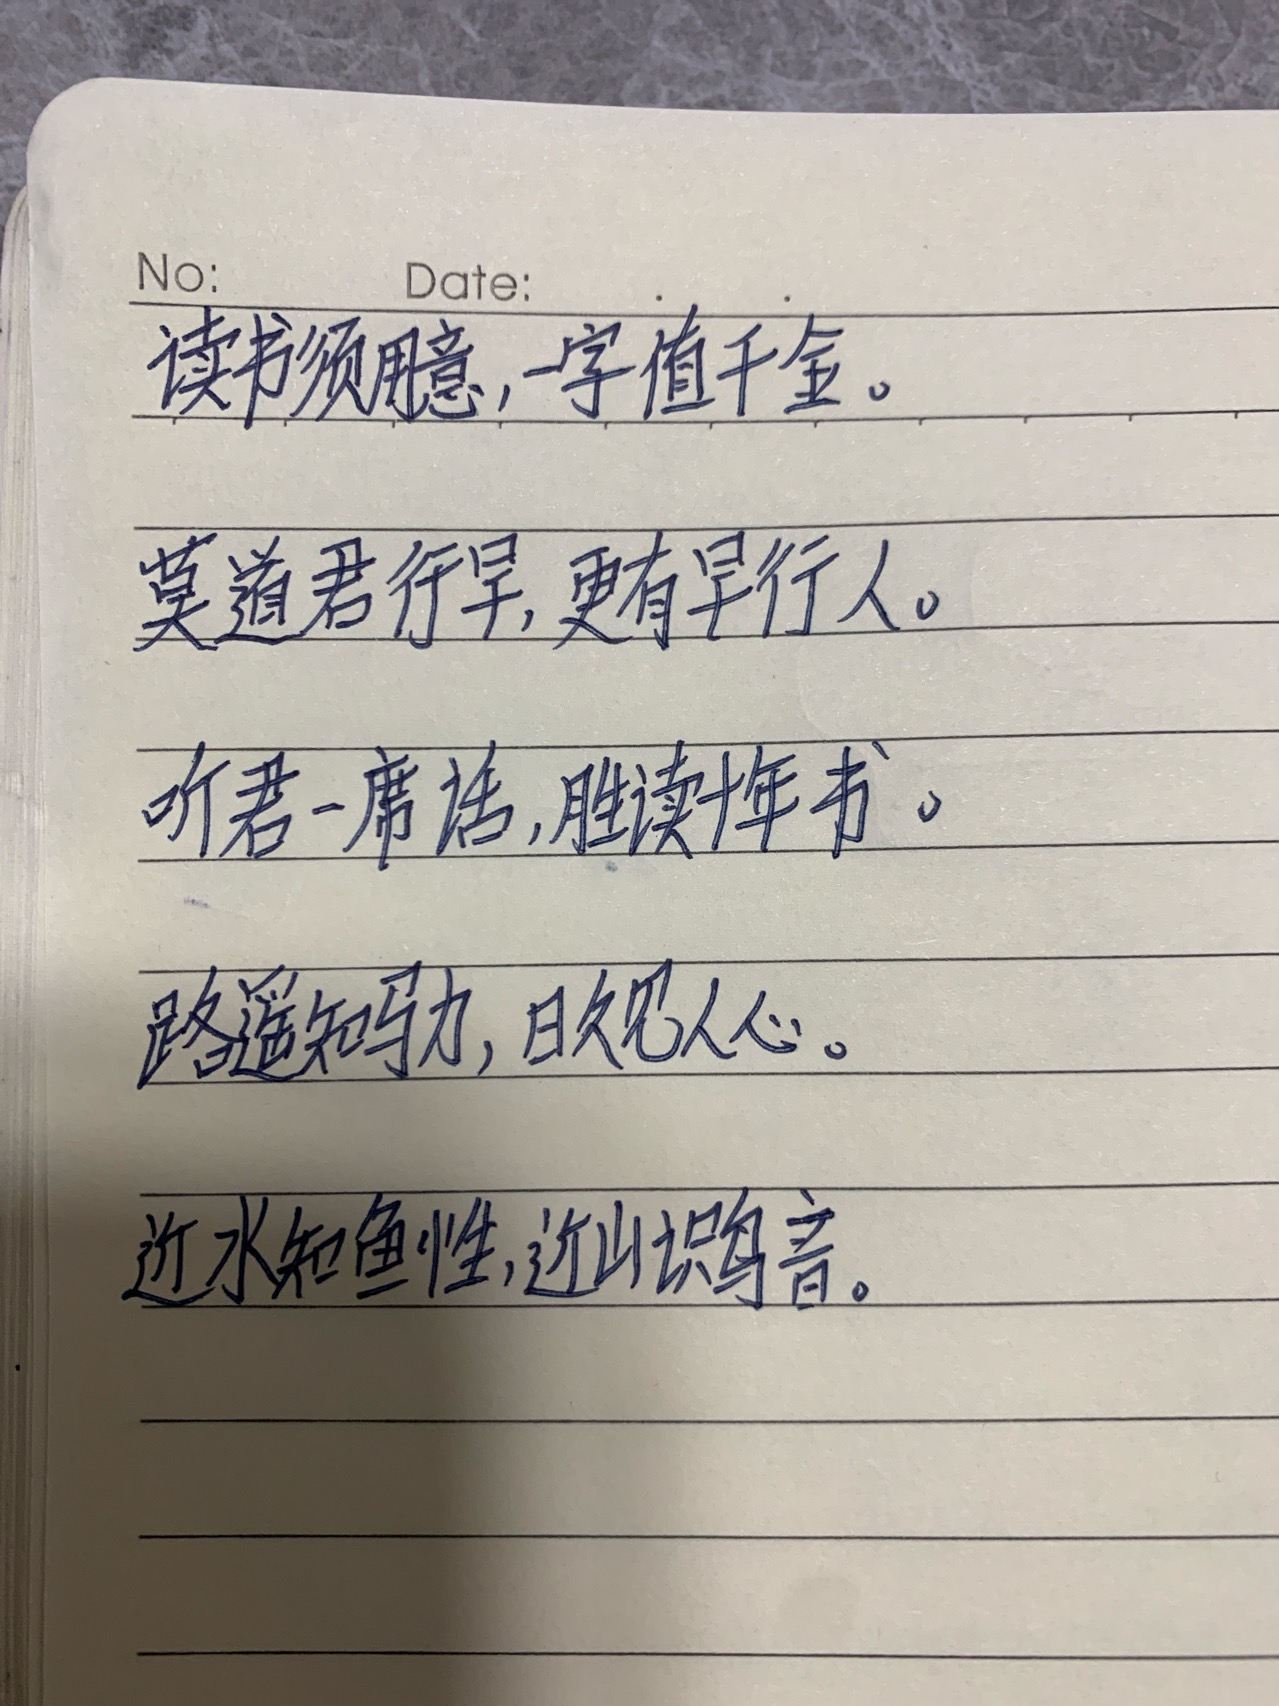 No: Date: . .
读书须用意,一字值千金。
莫道君行早,更有早行人。
听君一席话,胜读十年书。
路遥知马力,日久见人心。
近水知鱼性,近山识鸟音。